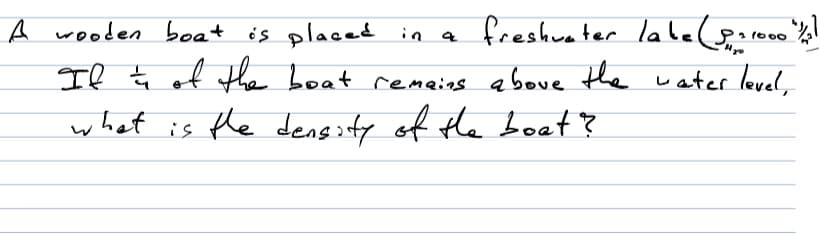 A wooden boat is placed in a freshwater lake (ρ_H₂O = 1000 kg/m³)
If ¼ of the boat remains above the water level,
what is the density of the boat?